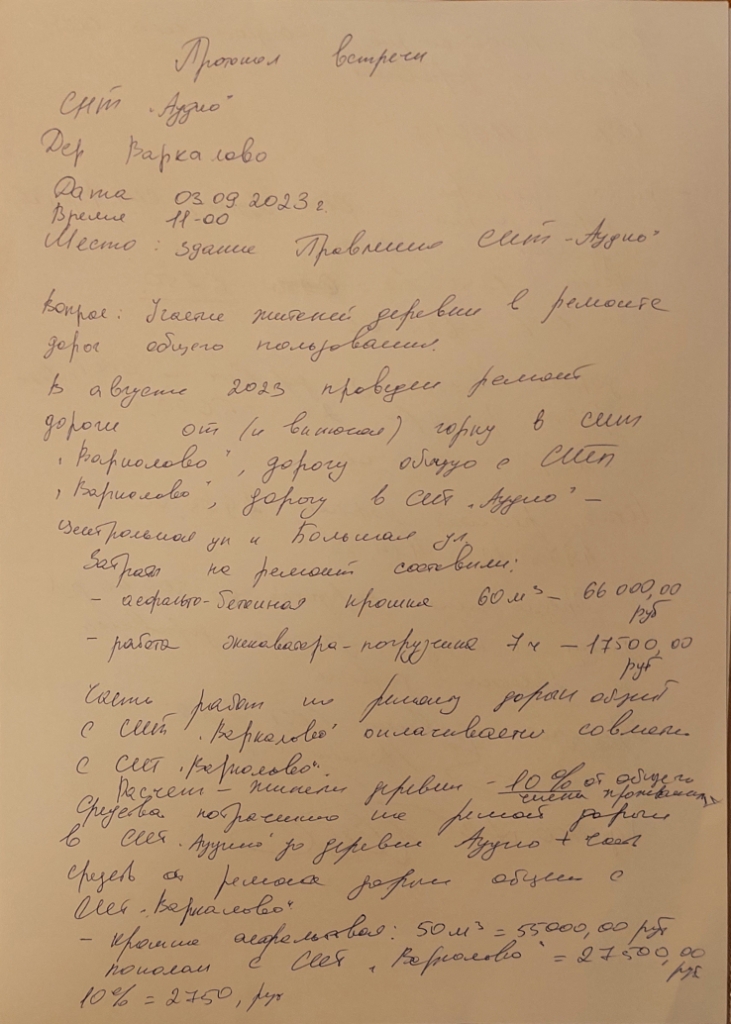 Протокол встречи
СНТ "Аудио"
Дер Варкалово
Дата 03.09.2023 г.
Время 11-00
Место: здание Правления СНТ "Аудио"
Вопрос: Участие жителей деревни в ремонте
дорог общего пользования.
В августе 2023 проведен ремонт
дороги от (и включая) горку в СНТ
"Варкалово", дорогу общую с СНТ
"Варкалово", дорогу в СНТ "Аудио" –
Центральная ул и Большая ул.
Затраты на ремонт составили:
- асфальто-бетонная крошка 60 м³ – 66 000,00
руб
- работа экскаватора-погрузчика 7 ч – 17500,00
руб
Часть работ по ремонту дороги общей
с СНТ "Варкалово" оплачивается совместно
с СНТ "Варкалово".
Расчет – жители деревни – 10% от общего
числа
Средства потраченные на ремонт дороги
в СНТ "Аудио" до деревни Аудио + часть
средств от ремонта дороги общей с
СНТ "Варкалово"
- крошка асфальтовая: 50 м³ = 55000,00 руб
пополам с СНТ "Варкалово" = 27500,00
руб
10% = 2750, руб